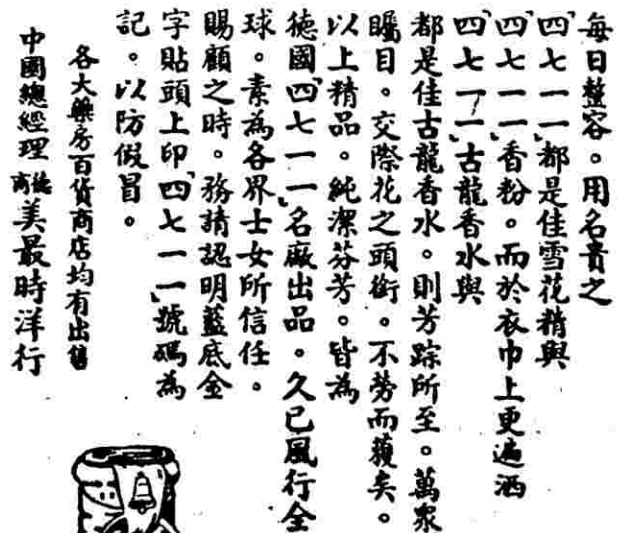 每日整容。用名貴之
「四七一一」都是佳雪花精與
「四七一一」香粉。而於衣巾上更遍洒
「四七一一」古龍香水與
都是佳古龍香水。則芳踪所至。萬眾
矚目。交際花之頭銜。不勞而獲矣。
以上精品。純潔芬芳。皆為
德國「四七一一」名廠出品。久已風行全
球。素為各界士女所信任。
賜顧之時。務請認明藍底金
字貼頭上印「四七一一」號碼為
記。以防假冒。
各大藥房百貨商店均有出售
中國總經理 德商 美最時洋行